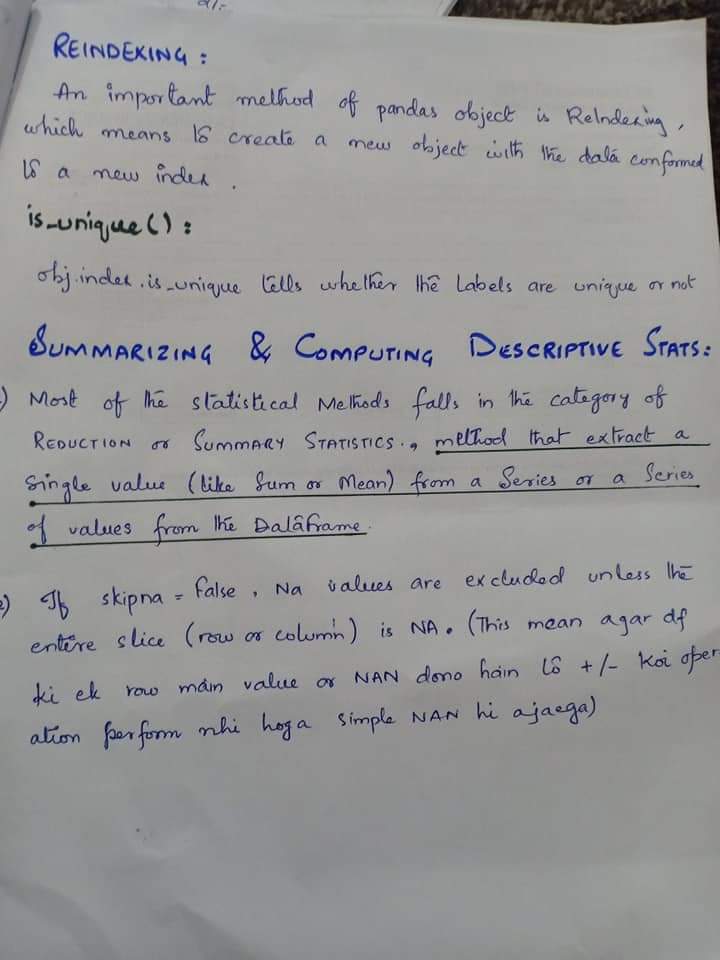 REINDEXING :
An important method of pandas object is ReIndexing,
which means to create a new object with the data conformed
to a new index.
is_unique() :
obj.index.is_unique tells whether the Labels are unique or not
SUMMARIZING & COMPUTING DESCRIPTIVE STATS:
) Most of the statistical Methods falls in the category of
REDUCTION or SUMMARY STATISTICS., method that extract a
single value (like Sum or Mean) from a Series or a Series
of values from the DataFrame.
) If skipna = False, Na values are excluded unless the
entire slice (row or column) is NA. (This mean agar df
ki ek row main value or NAN dono hain to +/- Koi oper
ation perform nhi hoga simple NAN hi ajaega)